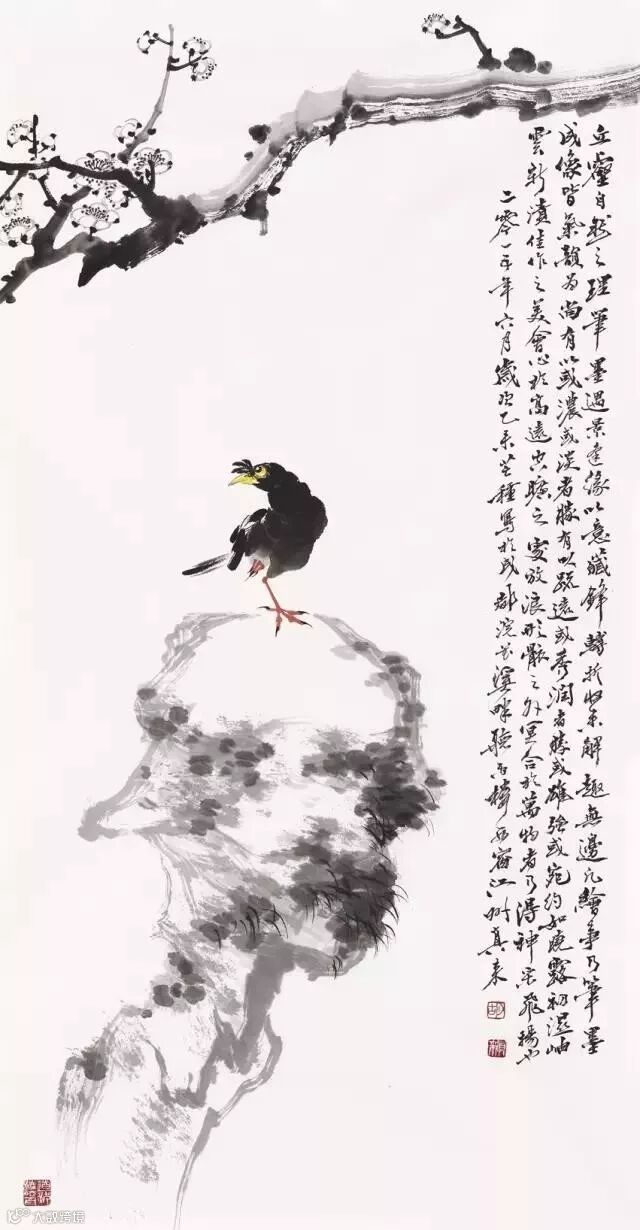 丘壑自然之理筆墨遇景逢緣以意藏鋒轉於收未解趣無邊凡繪事乃筆墨
成像皆氣韻为尚有以或濃或淡者勝有以疏遠或秀潤者勝或雄強或宛约如晚露初濕岫
雲新滴佳作之美會心於高遠空曠之雯放浪形骸之外冥合於萬物者乃得神采飛揚也
二零一五年六月歲次乙未芒種寫於成都浣花溪畔聽石樓西窗江州真来
大数跨境